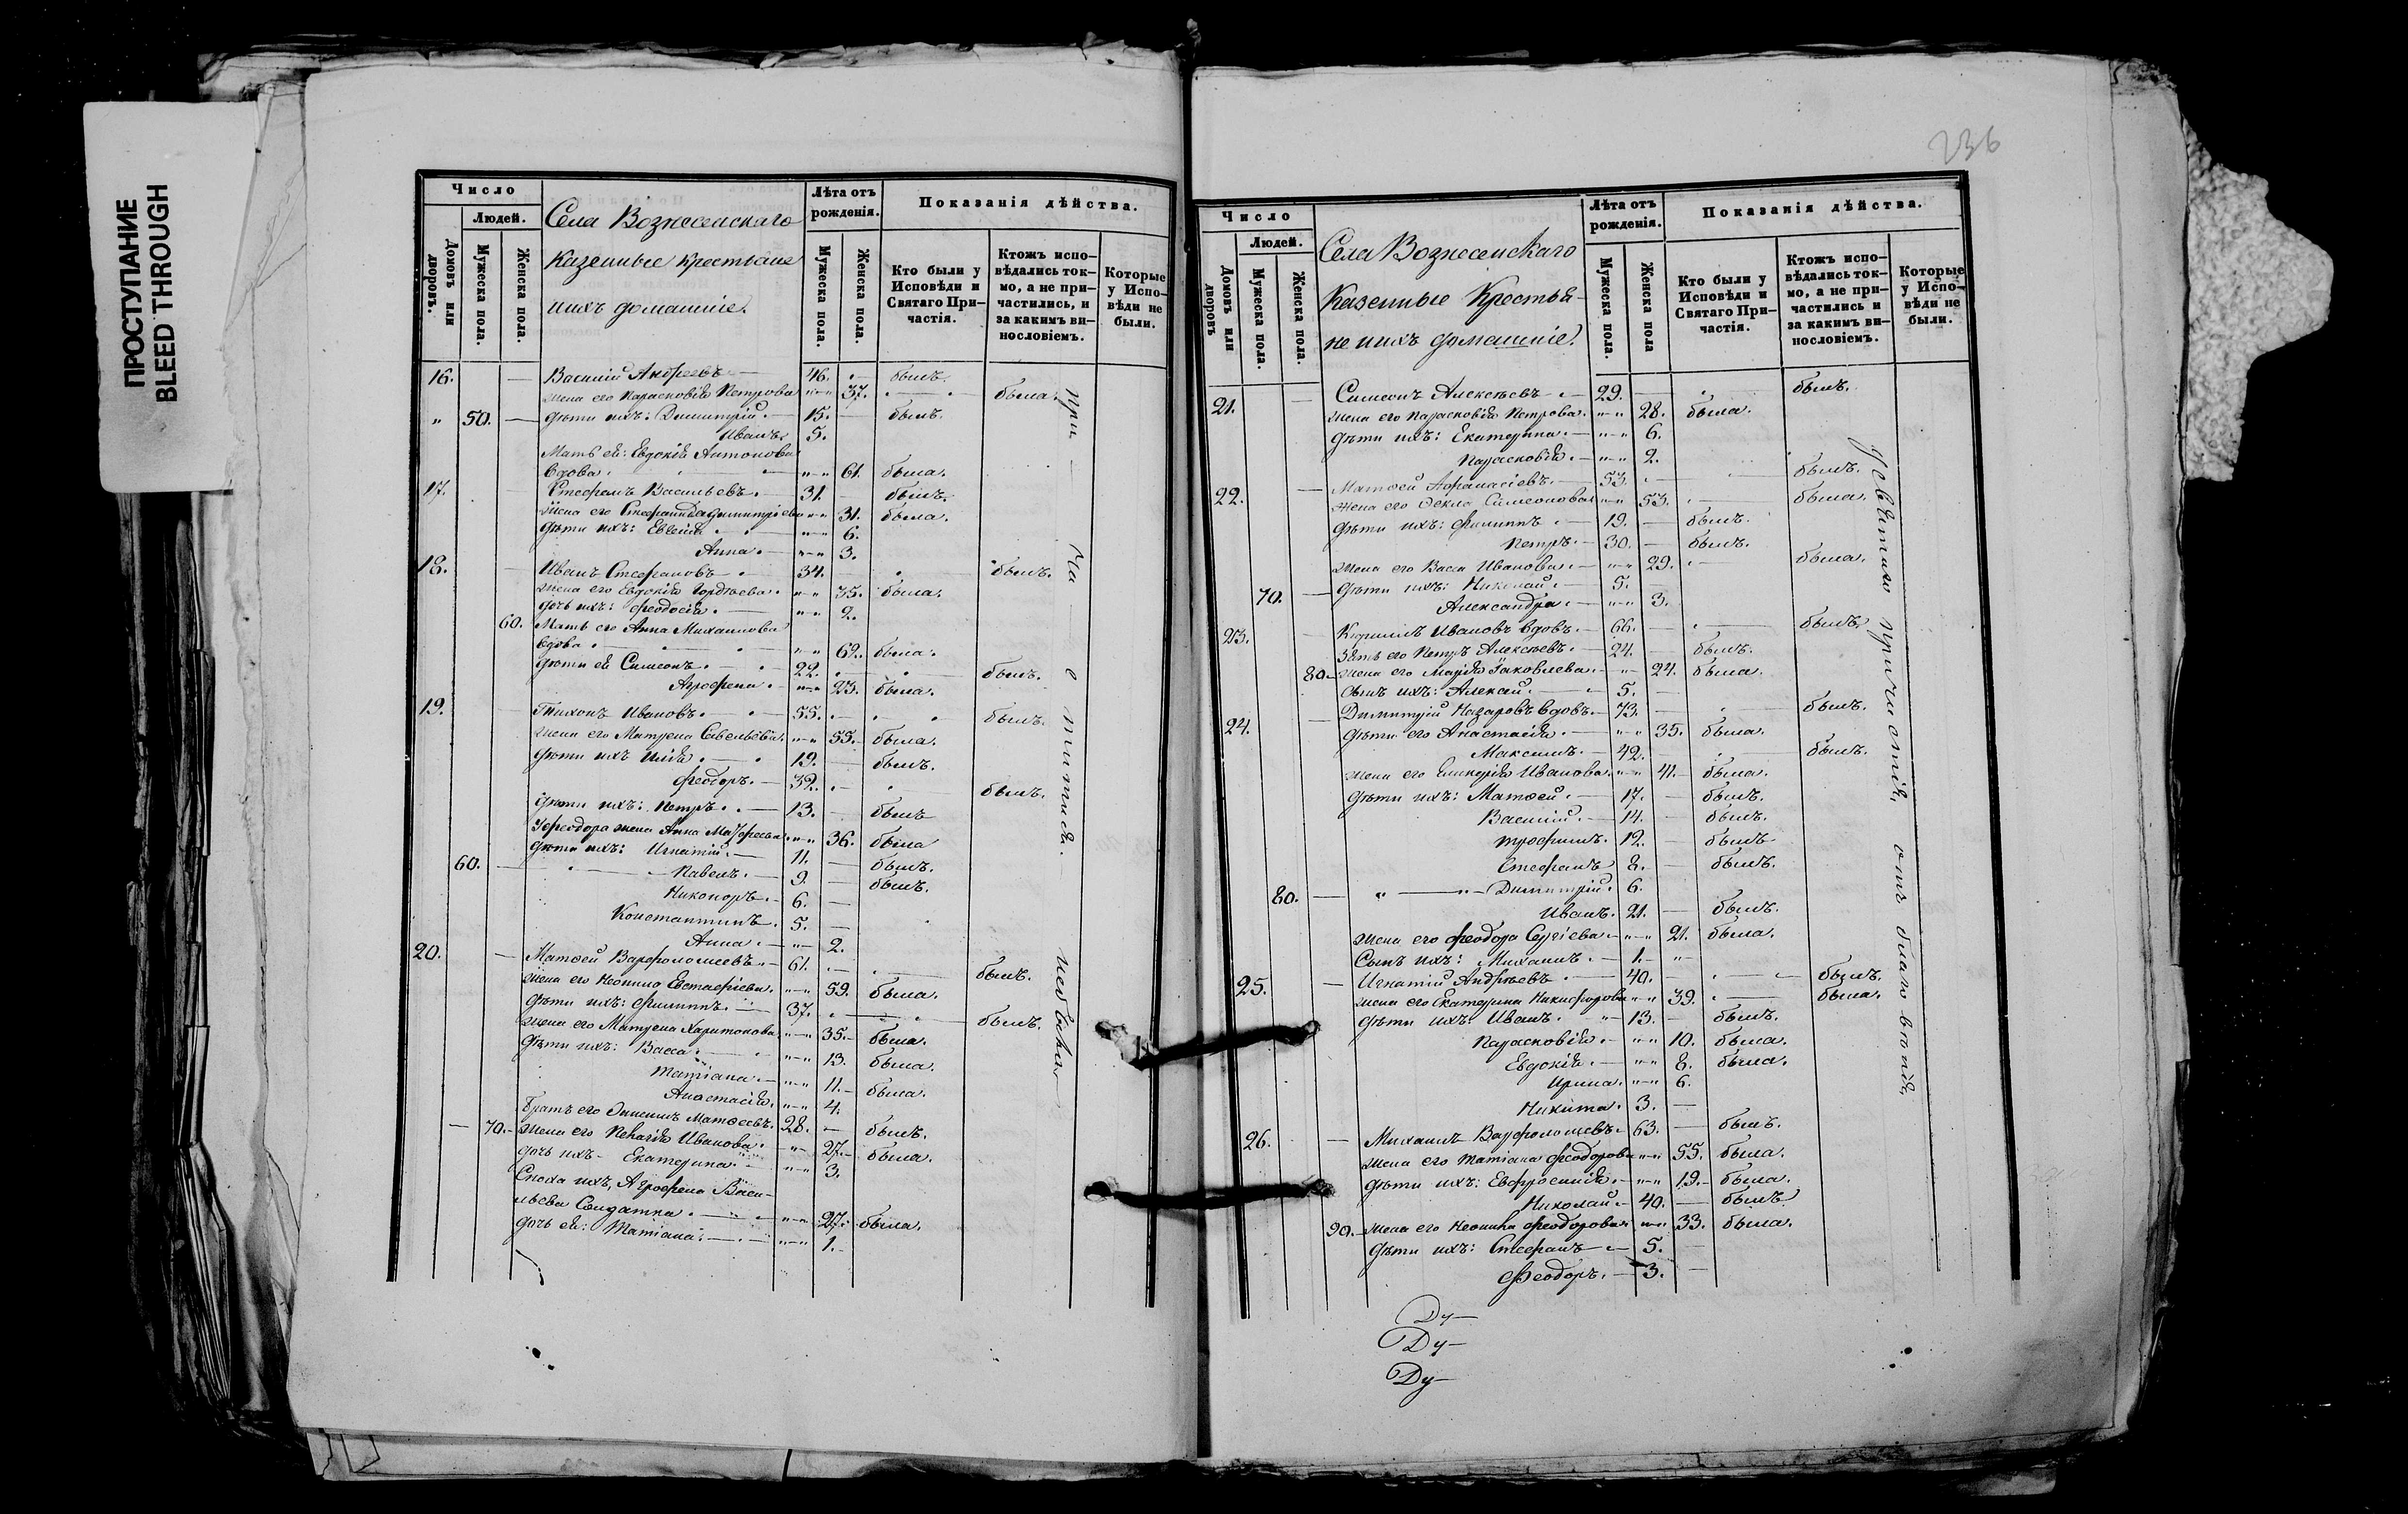 ПРОСТУПАНИЕ
BLEED THROUGH
Число
Людей.
Домовъ или дворовъ.
Мужеска пола.
Женска пола.
Села Вознесенскаго
Казенные крестьяне
ихъ домашніе.
Лѣта отъ рожденія.
Мужеска пола.
Женска пола.
Показанія дѣйства.
Кто были у Исповѣди и Святаго При-частія.
Ктожъ испо-вѣдались ток-мо, а не при-частились, и за какимъ ви-нословіемъ.
Которые у Испо-вѣди не были.
16. — Василій Андреевъ — 46. былъ.
жена его Парасковія Петрова 37. была.
50. — дѣти ихъ: Димитрій. — 15. — былъ.
Иванъ. 5.
Мать ея: Евдокія Антонова
вдова. 61. была.
17. Стефанъ Васильевъ. — 31. — былъ.
жена его Стефанида Димитріева 31. была.
дѣти ихъ: Евгенія 6.
Анна. — 3.
18. — Иванъ Стефановъ — 34. былъ.
жена его Евдокія Гордѣева. 35. была.
дочь ихъ: Феодосія. — 2.
60. Мать его Анна Михаилова
вдова. 62. была.
дѣти ея Симеонъ. — 22. былъ.
Агрофена. 23. была.
19. — Тихонъ Ивановъ. 55. былъ.
жена его Матрена Савельева. 55. была.
дѣти ихъ Илія. 19. — былъ.
Феодоръ. — 32. былъ.
дѣти ихъ: Петръ. — 13. — былъ
У Феодора жена Анна 36. была
дѣти ихъ: Игнатій. — 11. — былъ.
60. — Павелъ. — 9. — былъ.
Никоноръ. 6. —
Константинъ. 5. —
Анна. — 2.
20. — Матѳей Варфоломеевъ. — 61. былъ.
жена его Неонила Евстафіева. 59. была.
дѣти ихъ: Филиппъ. 37. былъ.
жена его Матрена Харитонова. 35. была.
дѣти ихъ: Васса. 13. была.
Татіана. 11. — была.
Анастасія. 4.
братъ его Онисимъ Матѳеевъ. 28. — былъ.
70. жена его Пелагія Иванова. 27. была.
дочь ихъ — Екатерина. 3.
Сноха ихъ, Агрофена Васи-
льева Солдатка. 27. была.
дочь ея: Татіана. 1.
236
Число
Людей.
Домовъ или дворовъ
Мужеска пола.
Женска пола.
Села Вознесенскаго
Казенные Крестья-
не ихъ домашніе.
Лѣта отъ рожденія.
Мужеска пола.
Женска пола
Показанія дѣйства.
Кто были у Исповѣди и Святаго При-частія.
Ктожъ испо-вѣдались ток-мо, а не при-частились и за какимъ ви-нословіемъ.
Которые у Испо-вѣди не были.
21. — Симеонъ Алексѣевъ — 29. — былъ.
жена его Парасковія Петрова. 28. была.
дѣти ихъ: Екатерина. — 6.
Парасковія. 2.
22. — Матѳей Афанасіевъ. — 53. былъ.
жена его Ѳекла Симеонова 53. была.
дѣти ихъ: Филиппъ — 19. — былъ.
Петръ. — 30. — былъ.
жена его Васса Иванова. 29. была.
70. — дѣти ихъ: Николай. — 5. —
Александра. — 3.
23. Кириллъ Ивановъ вдовъ. — 66. — былъ.
Зять его Петръ Алексѣевъ. — 24. — былъ.
80. жена его Марія Іаковлева. 24. была.
сынъ ихъ: Алексій. — 5. —
24. — Димитрій Назаровъ вдовъ. — 73. — былъ.
дѣти его Анастасія. — 35. была.
Максимъ. — 42. былъ.
жена его Гликерія Иванова. 41. — была.
дѣти ихъ: Матѳей. — 17. — былъ.
Василій. — 14. — былъ.
Трофимъ. 12. — былъ.
Стефанъ 8. — былъ.
80. — Димитрій. 6.
Иванъ. 21. — былъ.
жена его Феодора Сергіева. 21. была.
Сынъ ихъ: Михаилъ. — 1. —
25. — Игнатій Андрѣевъ — 40. — былъ.
жена его Екатерина Никифорова 39. была.
дѣти ихъ: Иванъ. 13. — былъ.
Парасковія. — 10. была.
Евдокія. — 8. была.
Ирина. 6.
Никита. 3. —
26. — Михаилъ Варфоломеевъ. 63. — былъ.
жена его Татіана Феодорова 55. была.
дѣти ихъ: Евфросинія. — 19. — была.
Николай. — 40. — былъ
90. жена его Неонила Феодорова 33. была.
дѣти ихъ: Стефанъ — 5. —
Феодоръ. — 3. —
Ду—
Ду—
Ду—